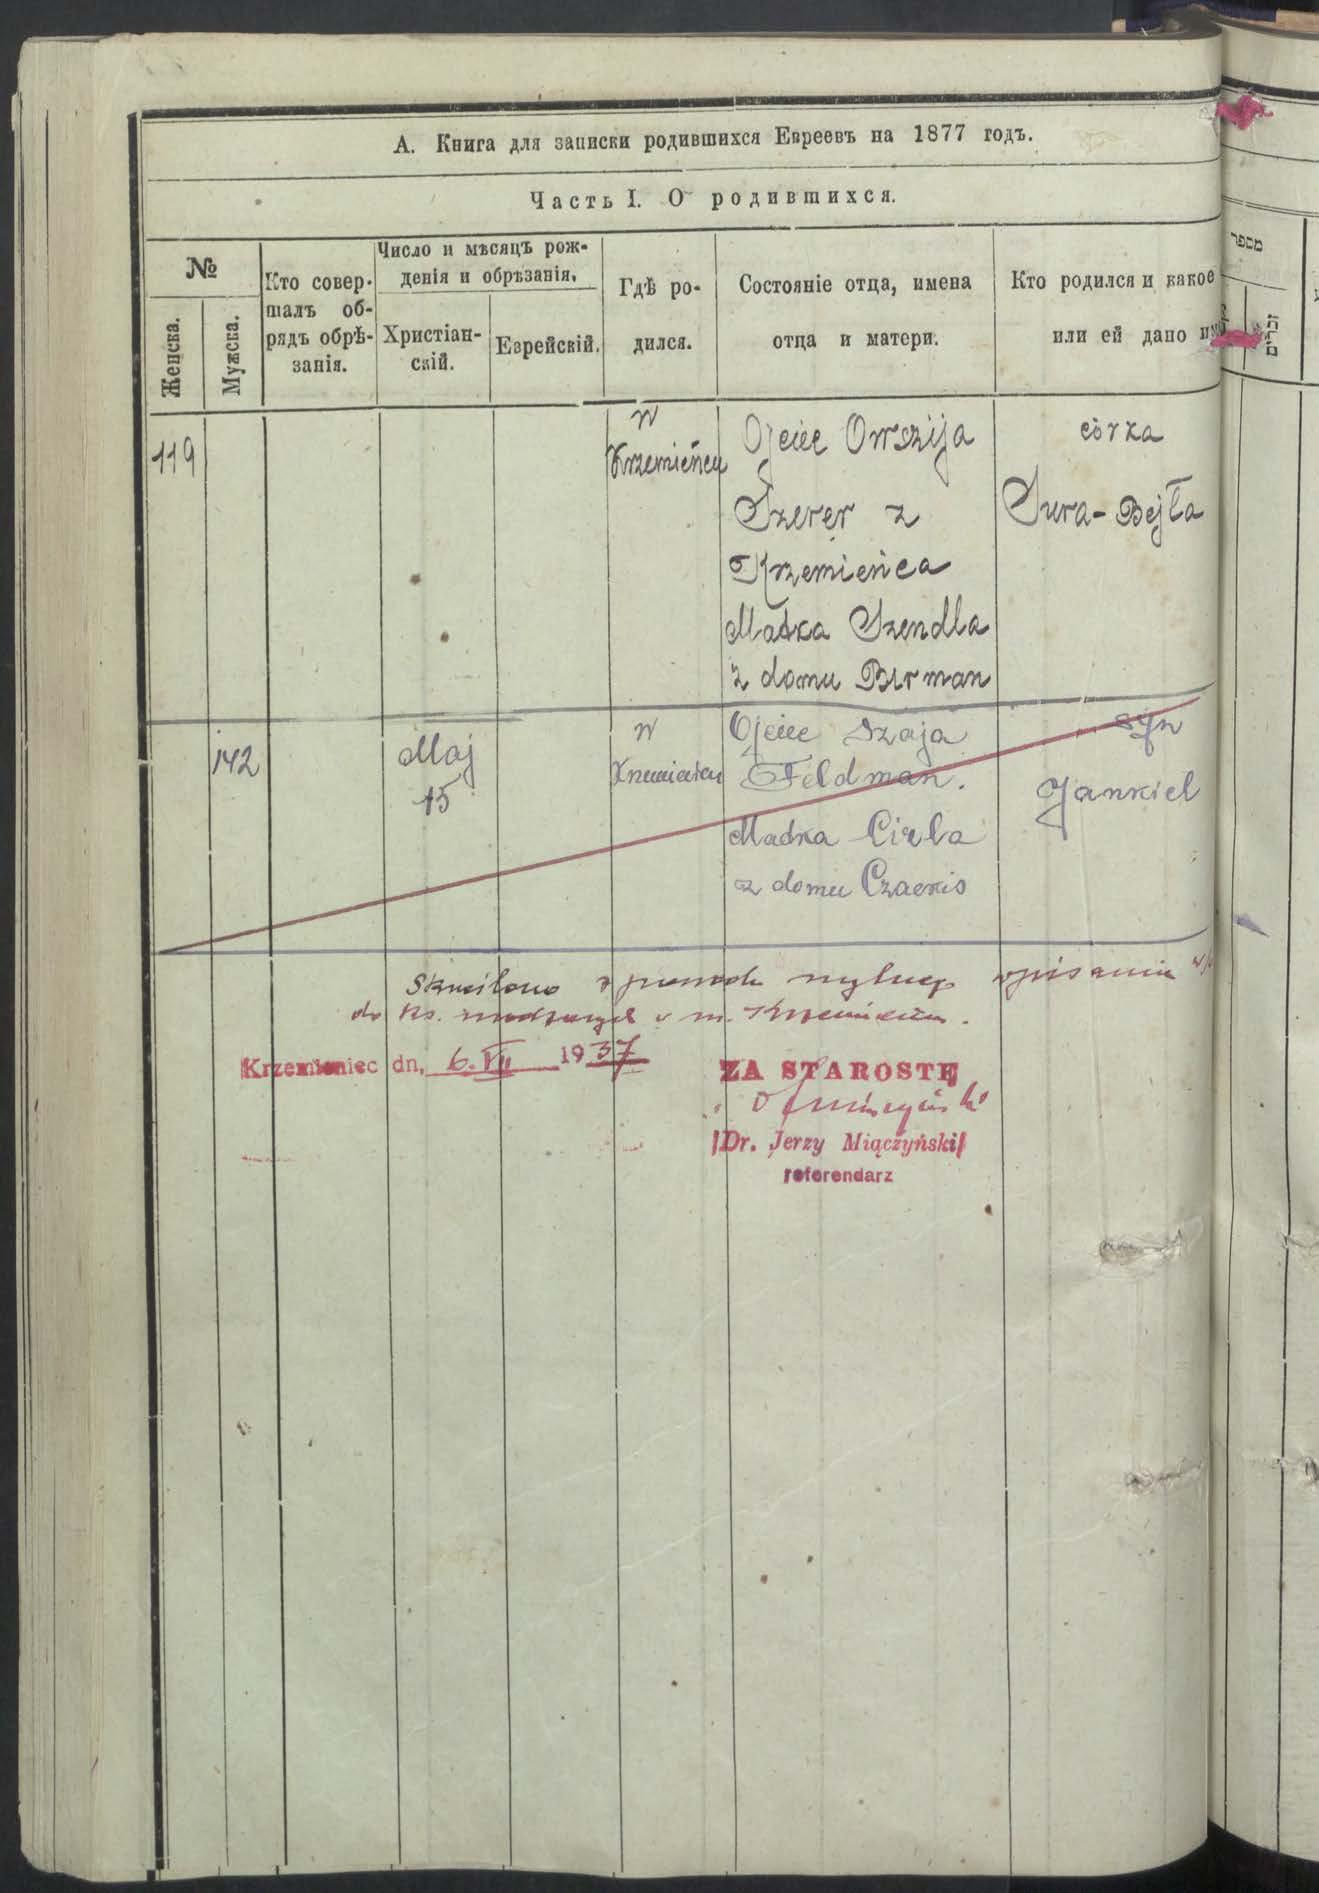 А. Книга для записки родившихся Евреевъ на 1877 годъ.
Часть I. О родившихся.
№
Женска.
Мужска.
Кто совер-
шалъ об-
рядъ обрѣ-
занія.
Число и мѣсяцъ рож-
денія и обрѣзанія.
Христіан-
скій.
Еврейскій.
Гдѣ ро-
дился.
Состояніе отца, имена
отца и матери.
Кто родился и какое
или ей дано
מספר
זכרים
119
w
Krzemieńcu
Ojciec Owszija
Szerer z
Krzemieńca
Matka Szendla
z domu Birman
córka
Sura-Bejła
142
Maj
15
w
Krzemieńcu
Ojciec Szaja
Feldman.
Madka Cirla
z domu Czackis
syn
Jankiel
Skreślono z powodu mylnego wpisania
do ks. w m. Krzemieńcu.
Krzemieniec dn. 6.VII 1937
ZA STAROSTĘ
/Dr. Jerzy Miączyński/
referendarz